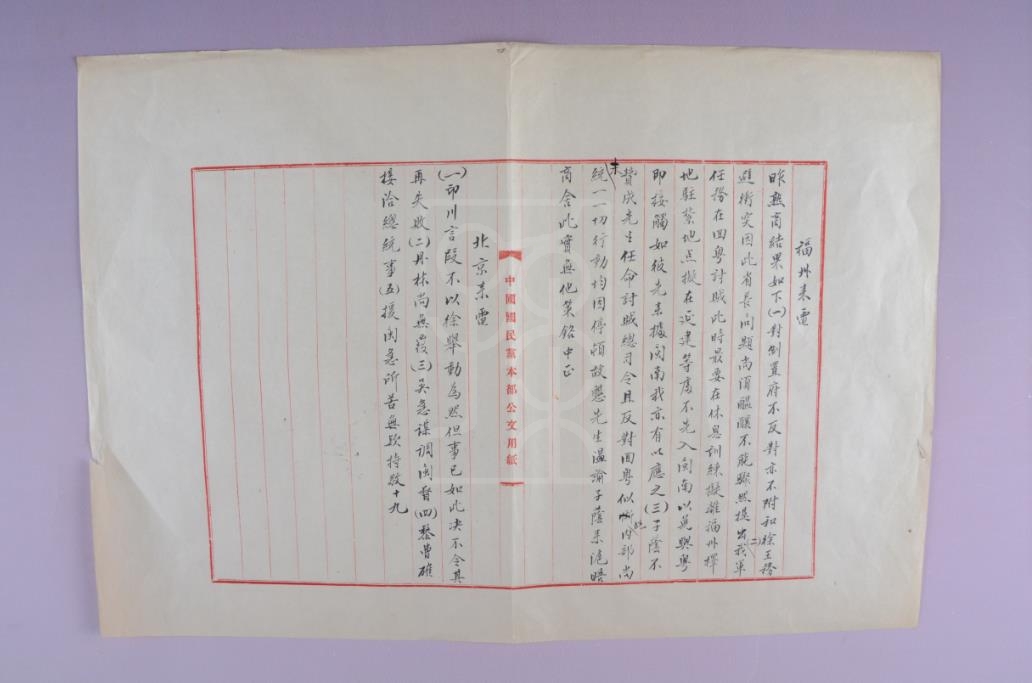 福州来電
昨熟商結果如下(一)對制置府不反對亦不附和徐王務
避衝突因此省長問題尚須醞釀不能驟然提出(二)我軍
任務在回粵討賊此時最要在休息訓練擬離福州擇
地駐紮地点擬在延建等處不先入閩南以免與粵
即接觸如彼先来據閩南我亦有以應之(三)子蔭不
賛成先生任命討賊總司令且反對回粵似此內部尚
未統一一切行動均因停頓故懇先生温諭子蔭来滬晤
商舍此實無他策銘中正
北京来電
(一)印川言段不以徐舉動為然但事已如此决不令其
再失敗(二)丹林尚無覆(三)吴急謀調閩督(四)黎曹確
接洽總統事(五)援閩急所苦無款持敬十九
中國國民黨本部公文用紙